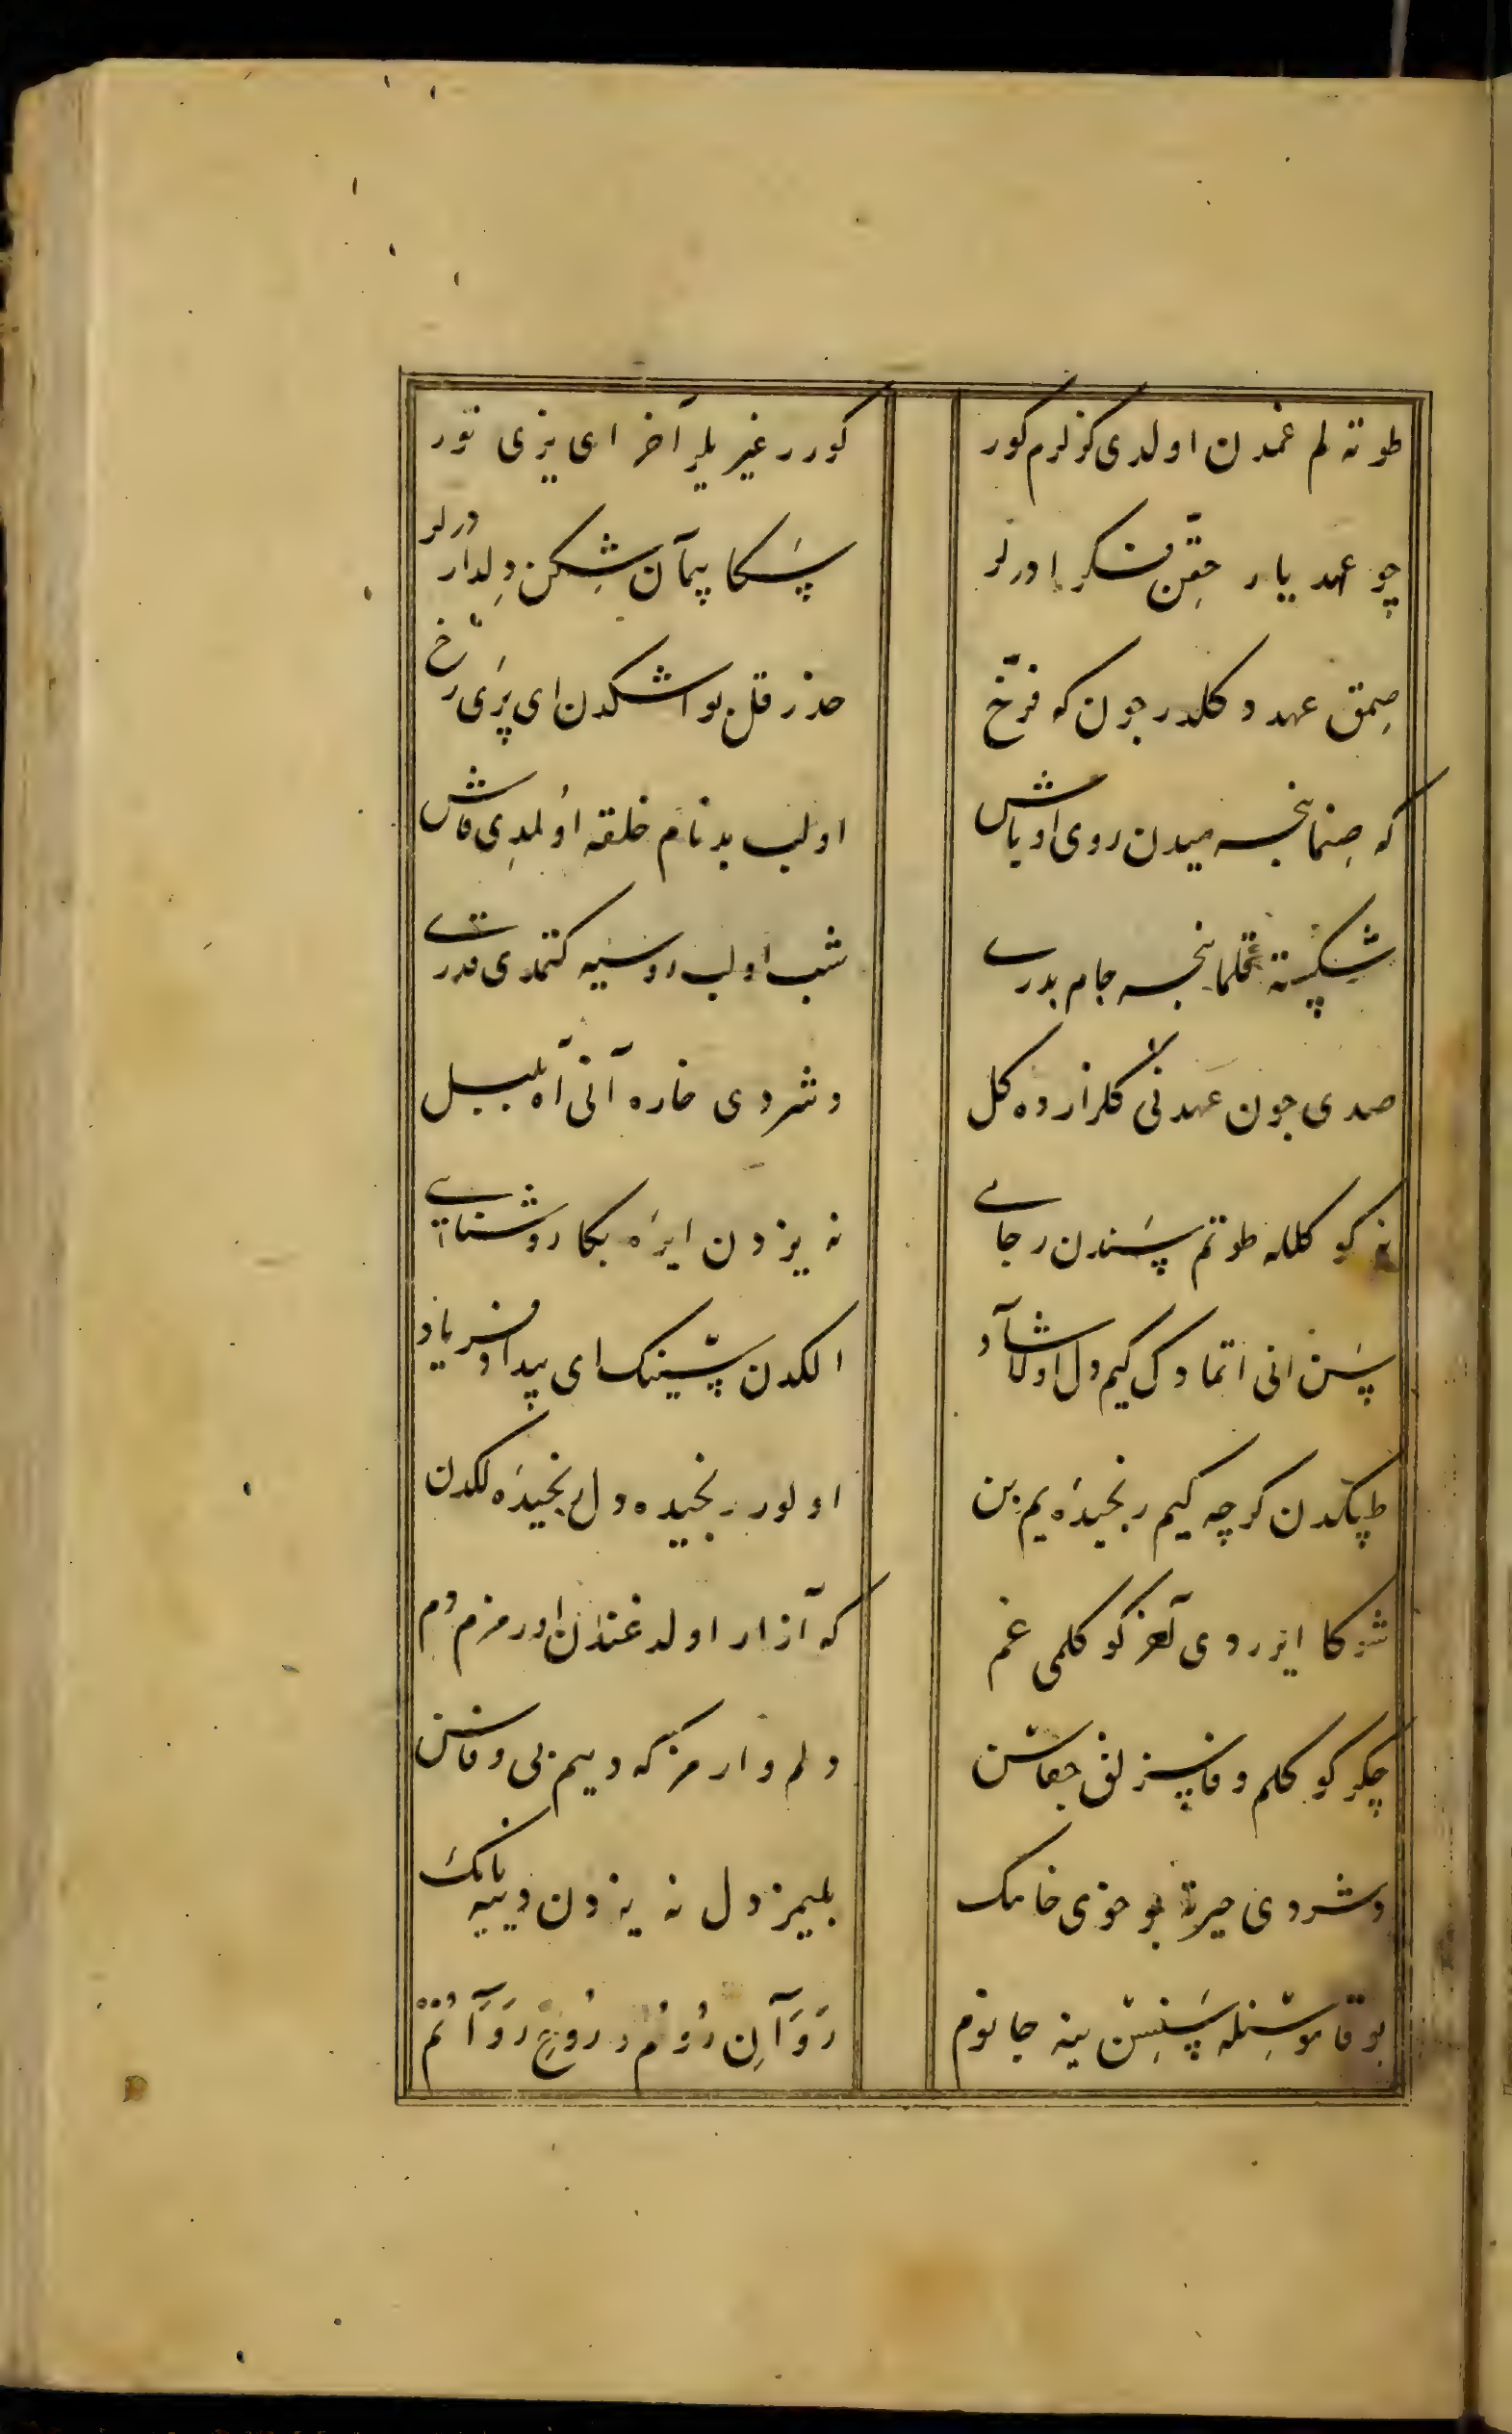 طوته لم غمدن اولدی کوزلرم کور کورر غیریلر آخر ای یزی نور
چو عهد یار حقن درلر پسکا پیمآن شکن دلدار درلر
صِمق عهد دکلدر چون که فرّخ حذر قل بو اشکدن ای پَری رخ
که صِنماینجه میدن روی اوباش اولب بدنام خلقه اُولمدِی فاش
شکپسته قلماینجه جام بدری شب اولب روسیه کتمدی قدری
صدی چون عَهدنی کلزارده کل دشردی خاره آنی آه بلبل
نه کوکلله طوتم پسَندن رجای نه یزدن ایرَه بکا روشنای
پسَن انی اتمادک کیم دل اولا شآد الکدن پسّینک ای بیداد فریاد
طپکدن کرچه کیم رنجیدَه یم بن اولور رنجیده دل رنجیدَه لکدن
کوکلمی غم که آزار اولدغندن اورمزم دم
چکر کوکلم وفاپسزلق جفاسن دلم وارمز که دییم بی وفاسن
دشردی حیرته بو خوی خامک بلیمز دل نه یزدن دییه نامک
بو قاموسّنله پسَنسِن ینه جانوم رَوَآنِ رُوُم و رُوحِ رَوَآنُم